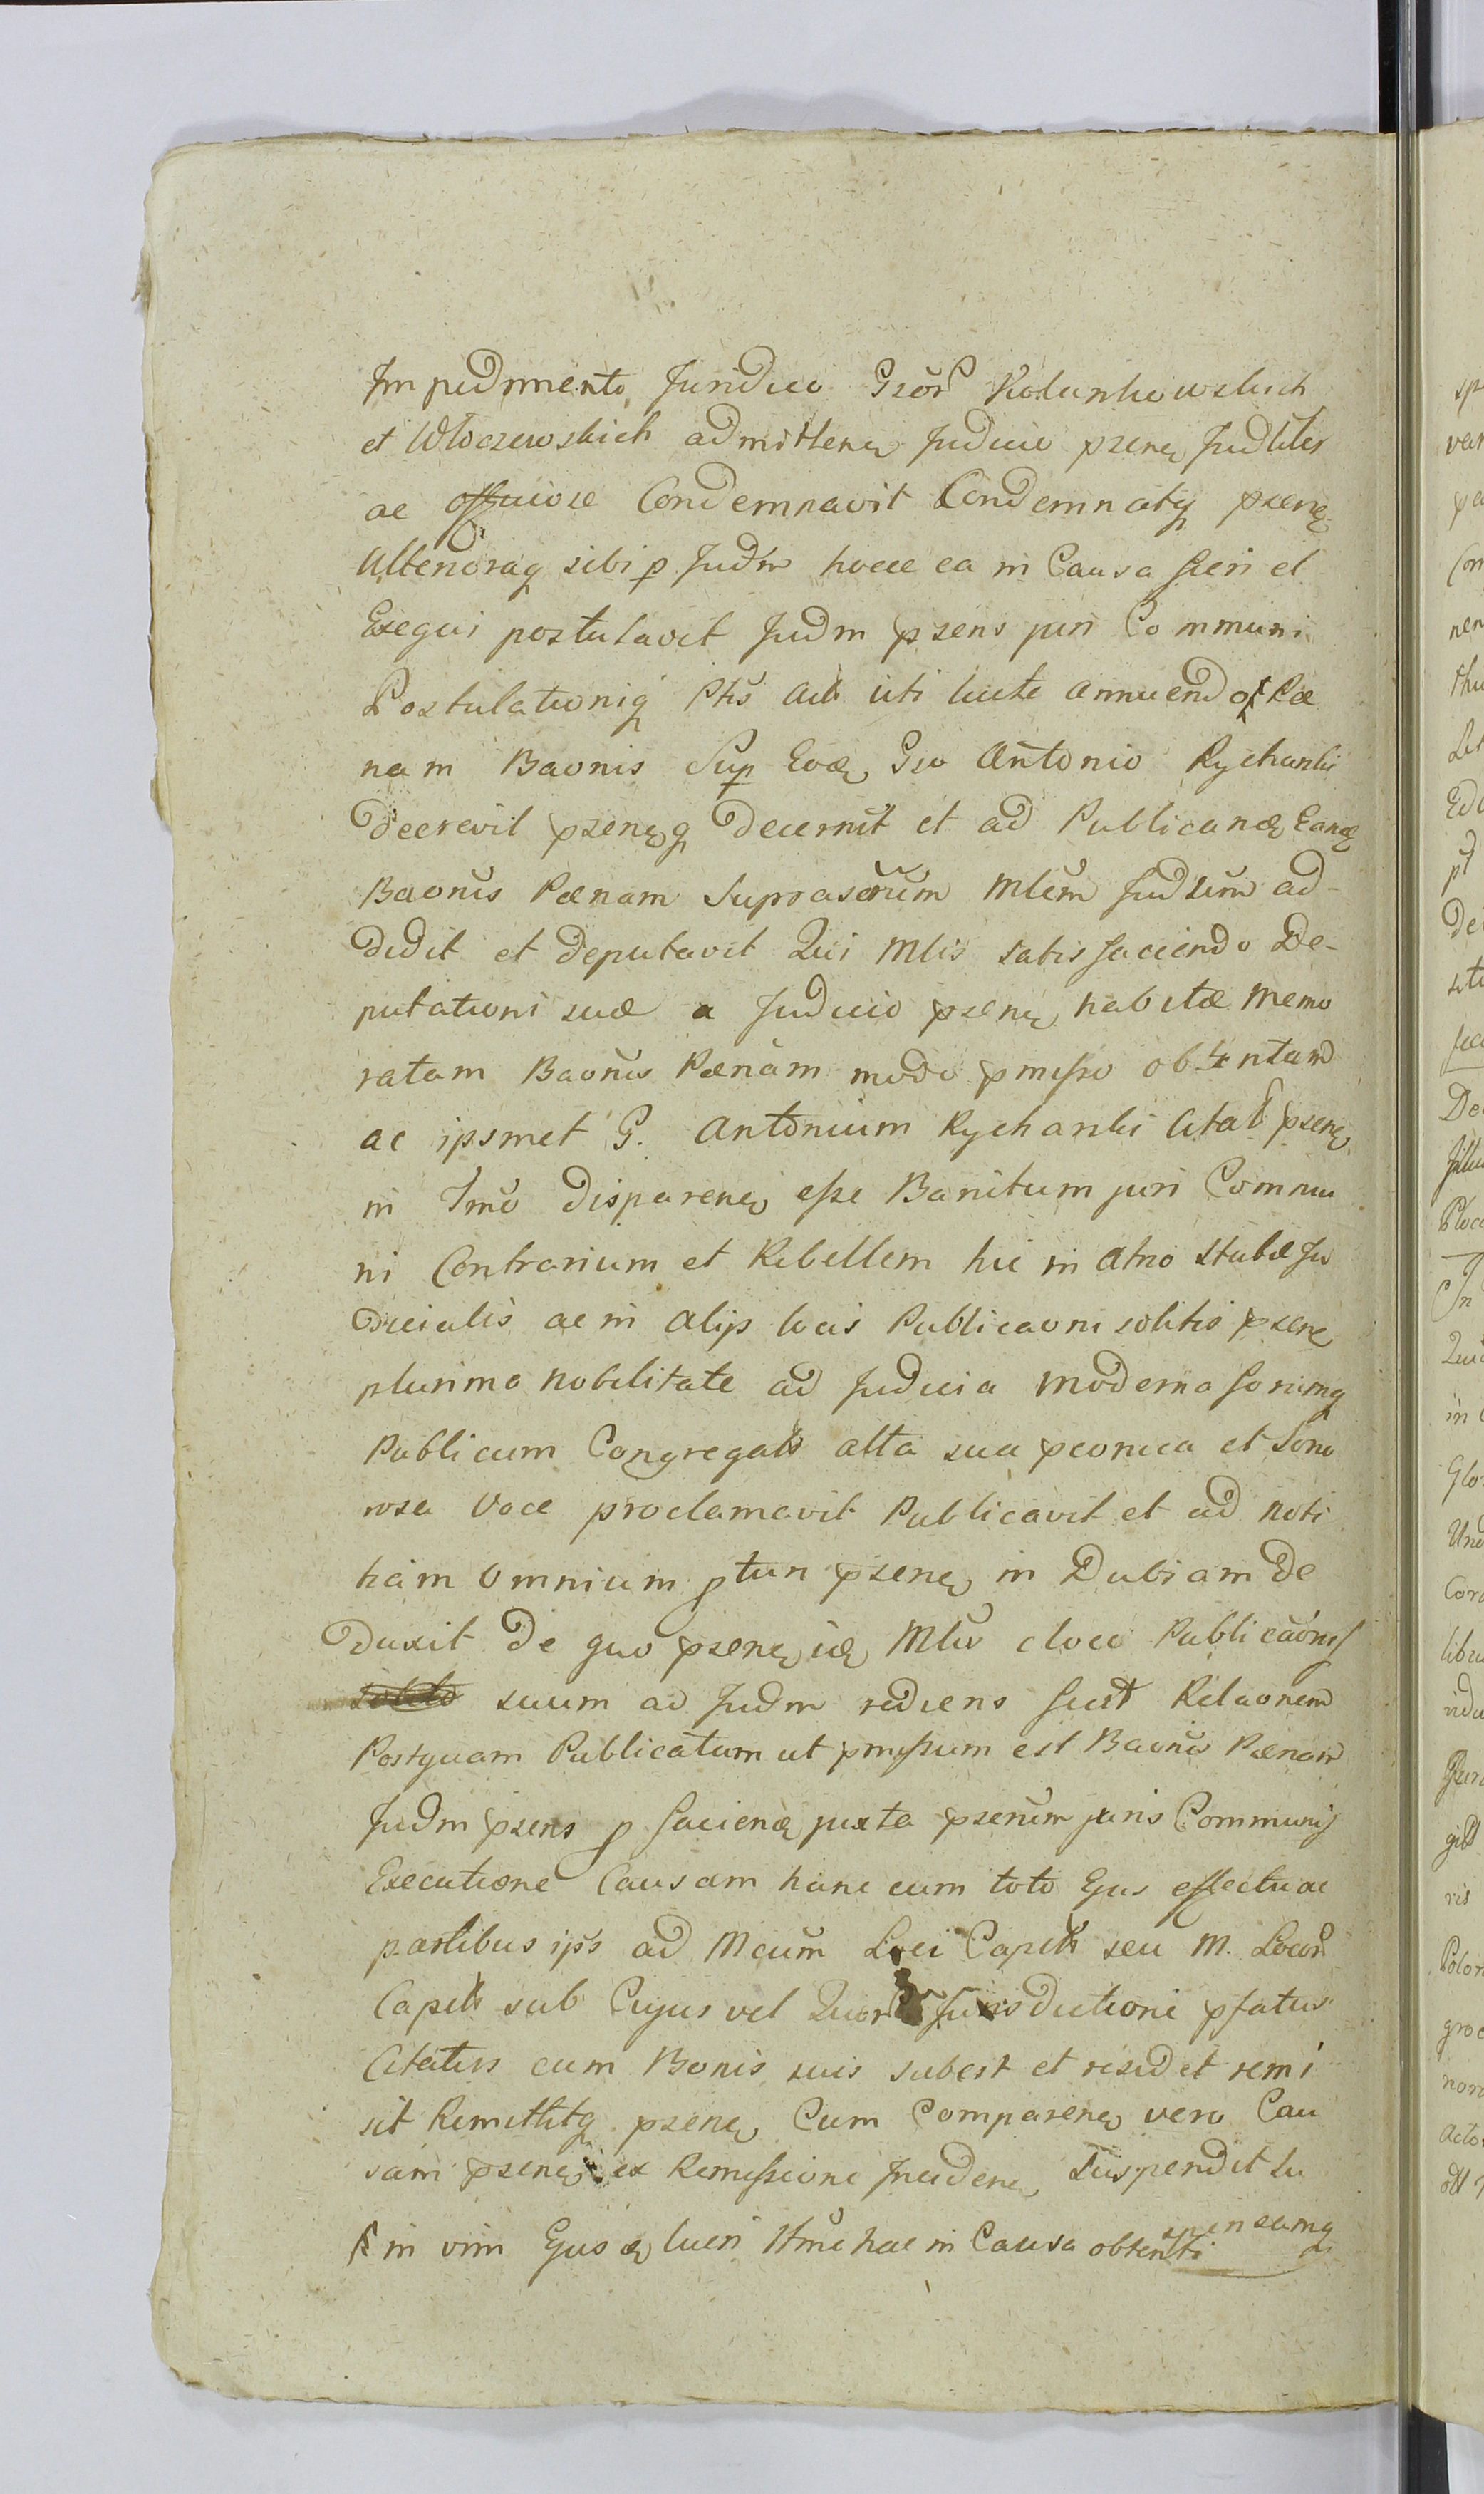 Impedimento Juridico Gsor Kolankowskich
et Włoczewskich admitten Judicio psens Judliter
ac officiose Condemnavit Condemnatq psens
Ulteriora q sibi p Judm hocce ea in Causa fieri et
Exequi postulavit Judm psens juri Communi
Postulationiq Ptis Act uti luite annuendo Pæ
nam Baonis Sup Eode Gso Antonio Rycharski
decrevit psensq decernit et ad Publicand Eand
Baonis Pænam Suprascrium Mlem Judrum ad-
didit et deputavit Qui Mlis satisfaciendo De-
putationi suæ a Judicio psen habitæ memo
ratam Baonis Pænam modo pmisso obtentam
ac ipsmet G. Antonium Rycharski Citat psens
in Tmo disparen esse Banitum juri Commu
ni Contrarium et Rebellem hic in atrio stubæ Ju
dicialis ac in alijs locis Publicaoni solitis psen
plurima Nobilitate ad Judicia moderna forumq
Publicum Congregats alta sua pconica et Sono
rosa Voce proclamavit Publicavit et ad noti
tiam Omnium ptun psen in Dubiam de
duxit de quo psen id Mlis eloco Publicaonis
suum ad Judm rediens fecit Relaonem
Postquam Publicatum ut pmissum est Baonis Pænam
Judm psens p faciend juxta psenum juris Communis
Executione Causam hanc cum toto Ejus effectu ac
partibus ips ad Mcum Loci Capits seu M. Locor
Capits sub Cujus vel Quor Jurisdictione pfatus
Citatus cum Bonis suis subest et residet remi
sit Remittitq psen Cum Comparen vero Cau
sam psen ex Remissione Inciden Suspendit Su
spensamq
in vim Ejus lucri Itmi hac in Causa obtenti